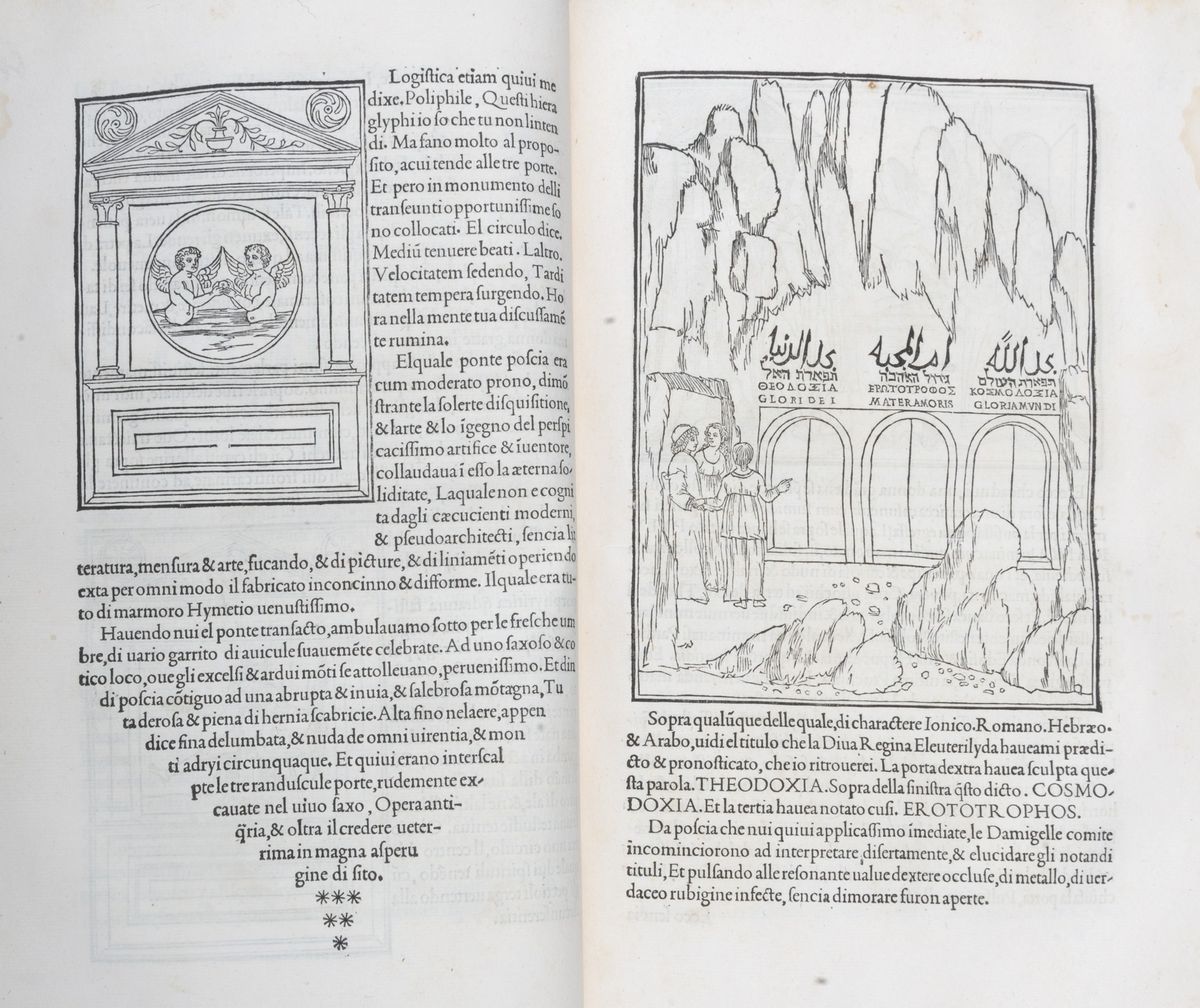 Logistica etiam quiui me
dixe. Poliphile, Questi hiera
glyphi io so che tu non linten
di. Ma fano molto al propo-
sito, a cui tende alle tre porte.
Et pero in monumento delli
transeunti opportunissime so
no collocati. El circulo dice.
Mediū tenuere beati. Laltro.
Velocitatem sedendo, Tardi
tatem tempera surgendo. Ho
ra nella mente tua discussamē
te rumina.
Elquale ponte poscia era
cum moderato prono, dimō
strante la solerte disquisitione,
& larte & lo īgegno del perspi
cacissimo artifice & iuentore,
collaudaua ī esso la æterna so-
liditate, Laquale non e cogni
ta dagli cæcucienti moderni,
& pseudoarchitecti, sencia lit
teratura, mensura & arte, fucando, & di picture, & di liniamēti operiendo
exta per omni modo il fabricato inconcinno & difforme. Il quale era tu-
to di marmoro Hymetio uenustissimo.
Hauendo nui el ponte transacto, ambulauamo sotto per le fresche um
bre, di uario garrito di auicule suauemēte celebrate. Ad uno saxoso & co
tico loco, oue gli excelsi & ardui mōti se attolleuano, peruenissimo. Et din
di poscia cōtiguo ad una abrupta & inuia, & salebrosa mōtagna, Tu
ta derosa & piena di hernia scabricie. Alta fino nel aere, appen
dice fina delumbata, & nuda de omni uirentia, & mon
ti adryi circunquaque. Et quiui erano interscal
pte le tre randuscule porte, rudemente ex-
cauate nel uiuo saxo, Opera anti-
q̄ria, & oltra il credere ueter-
rima in magna asperu
gine di sito.
***
**
*
تفארת האל
גדול האהבה
תפארת העולם
ΘΕΟΔΟΞΙΑ
ΕΡΩΤΟΤΡΟΦΟΣ
ΚΟΣΜΟΔΟΞΙΑ
GLORI DEI
MATER AMORIS
GLORIA MVNDI
Sopra qualūque delle quale, di charactere Ionico. Romano. Hebræo.
& Arabo, uidi el titulo che la Diua Regina Eleuterilyda haueami prædi-
cto & pronosticato, che io ritrouerei. La porta dextra hauea sculpta que-
sta parola. THEODOXIA. Sopra della sinistra q̄sto dicto. COSMO-
DOXIA. Et la tertia hauea notato cusi. EROTOTROPHOS.
Da poscia che nui quiui applicassimo īmediate, le Damigelle comite
incominciorono ad interpretare disertamente, & elucidare gli notandi
tituli, Et pulsando alle resonante ualue dextere occluse, di metallo, di uer-
daceo rubigine infecte, sencia dimorare furon aperte.